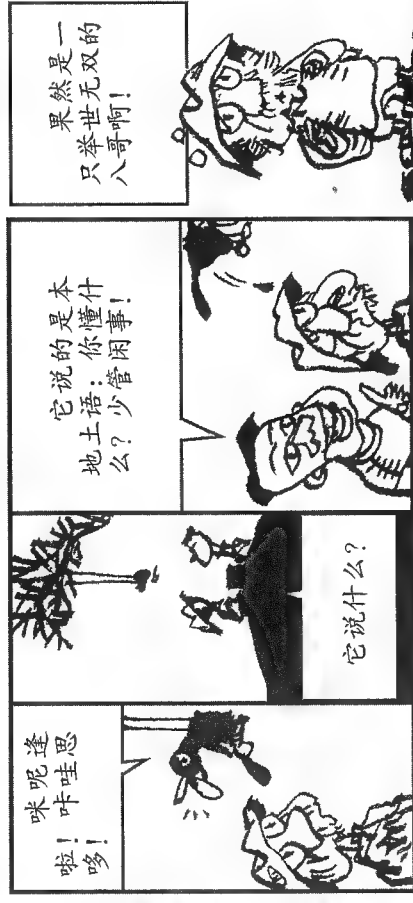 咪呢逢
啦！咔哇思
哆！
它说什么？
它说的是本
地土语：你懂什
么？少管闲事！
果然是一
只举世无双的
八哥啊！